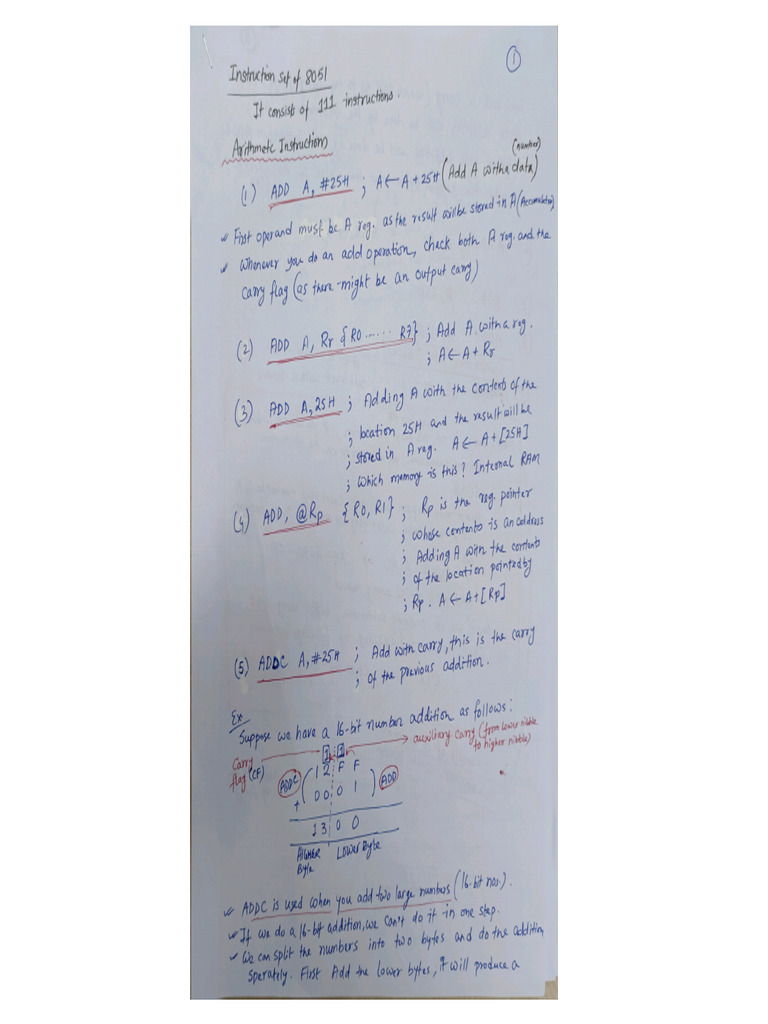 1
Instruction set of 8051
It consists of 111 instructions.
Arithmetic Instructions
(number)
(1) ADD A, #25H ; A ← A + 25H (Add A with a data)
✓ First operand must be A reg. as the result will be stored in A (Accumulator)
✓ Whenever you do an add operation, check both A reg. and the
carry flag (as there might be an output carry)
(2) ADD A, Rr {R0 ...... R7} ; Add A with a reg.
; A ← A + Rr
(3) ADD A, 25H ; Adding A with the contents of the
; location 25H and the result will be
; stored in A reg. A ← A + [25H]
; which memory is this? Internal RAM
(4) ADD, @Rp {R0, R1} ; Rp is the reg. pointer
; whose contents is an address
; Adding A with the contents
; of the location pointed by
; Rp. A ← A + [Rp]
(5) ADDC A, #25H ; Add with carry, this is the carry
; of the previous addition.
Ex
Suppose we have a 16-bit number addition as follows:
→ auxiliary carry (from lower nibble
to higher nibble)
Carry
flag (CF)
1 1
ADDC ( 1 2 F F
+ 0 0 0 1 ) ADD
1 3 0 0
Higher Lower Byte
Byte
✓ ADDC is used when you add two large numbers (16-bit nos.).
✓ If we do a 16-bit addition, we can't do it in one step.
✓ We can split the numbers into two bytes and do the addition
sperately. First Add the lower bytes, it will produce a